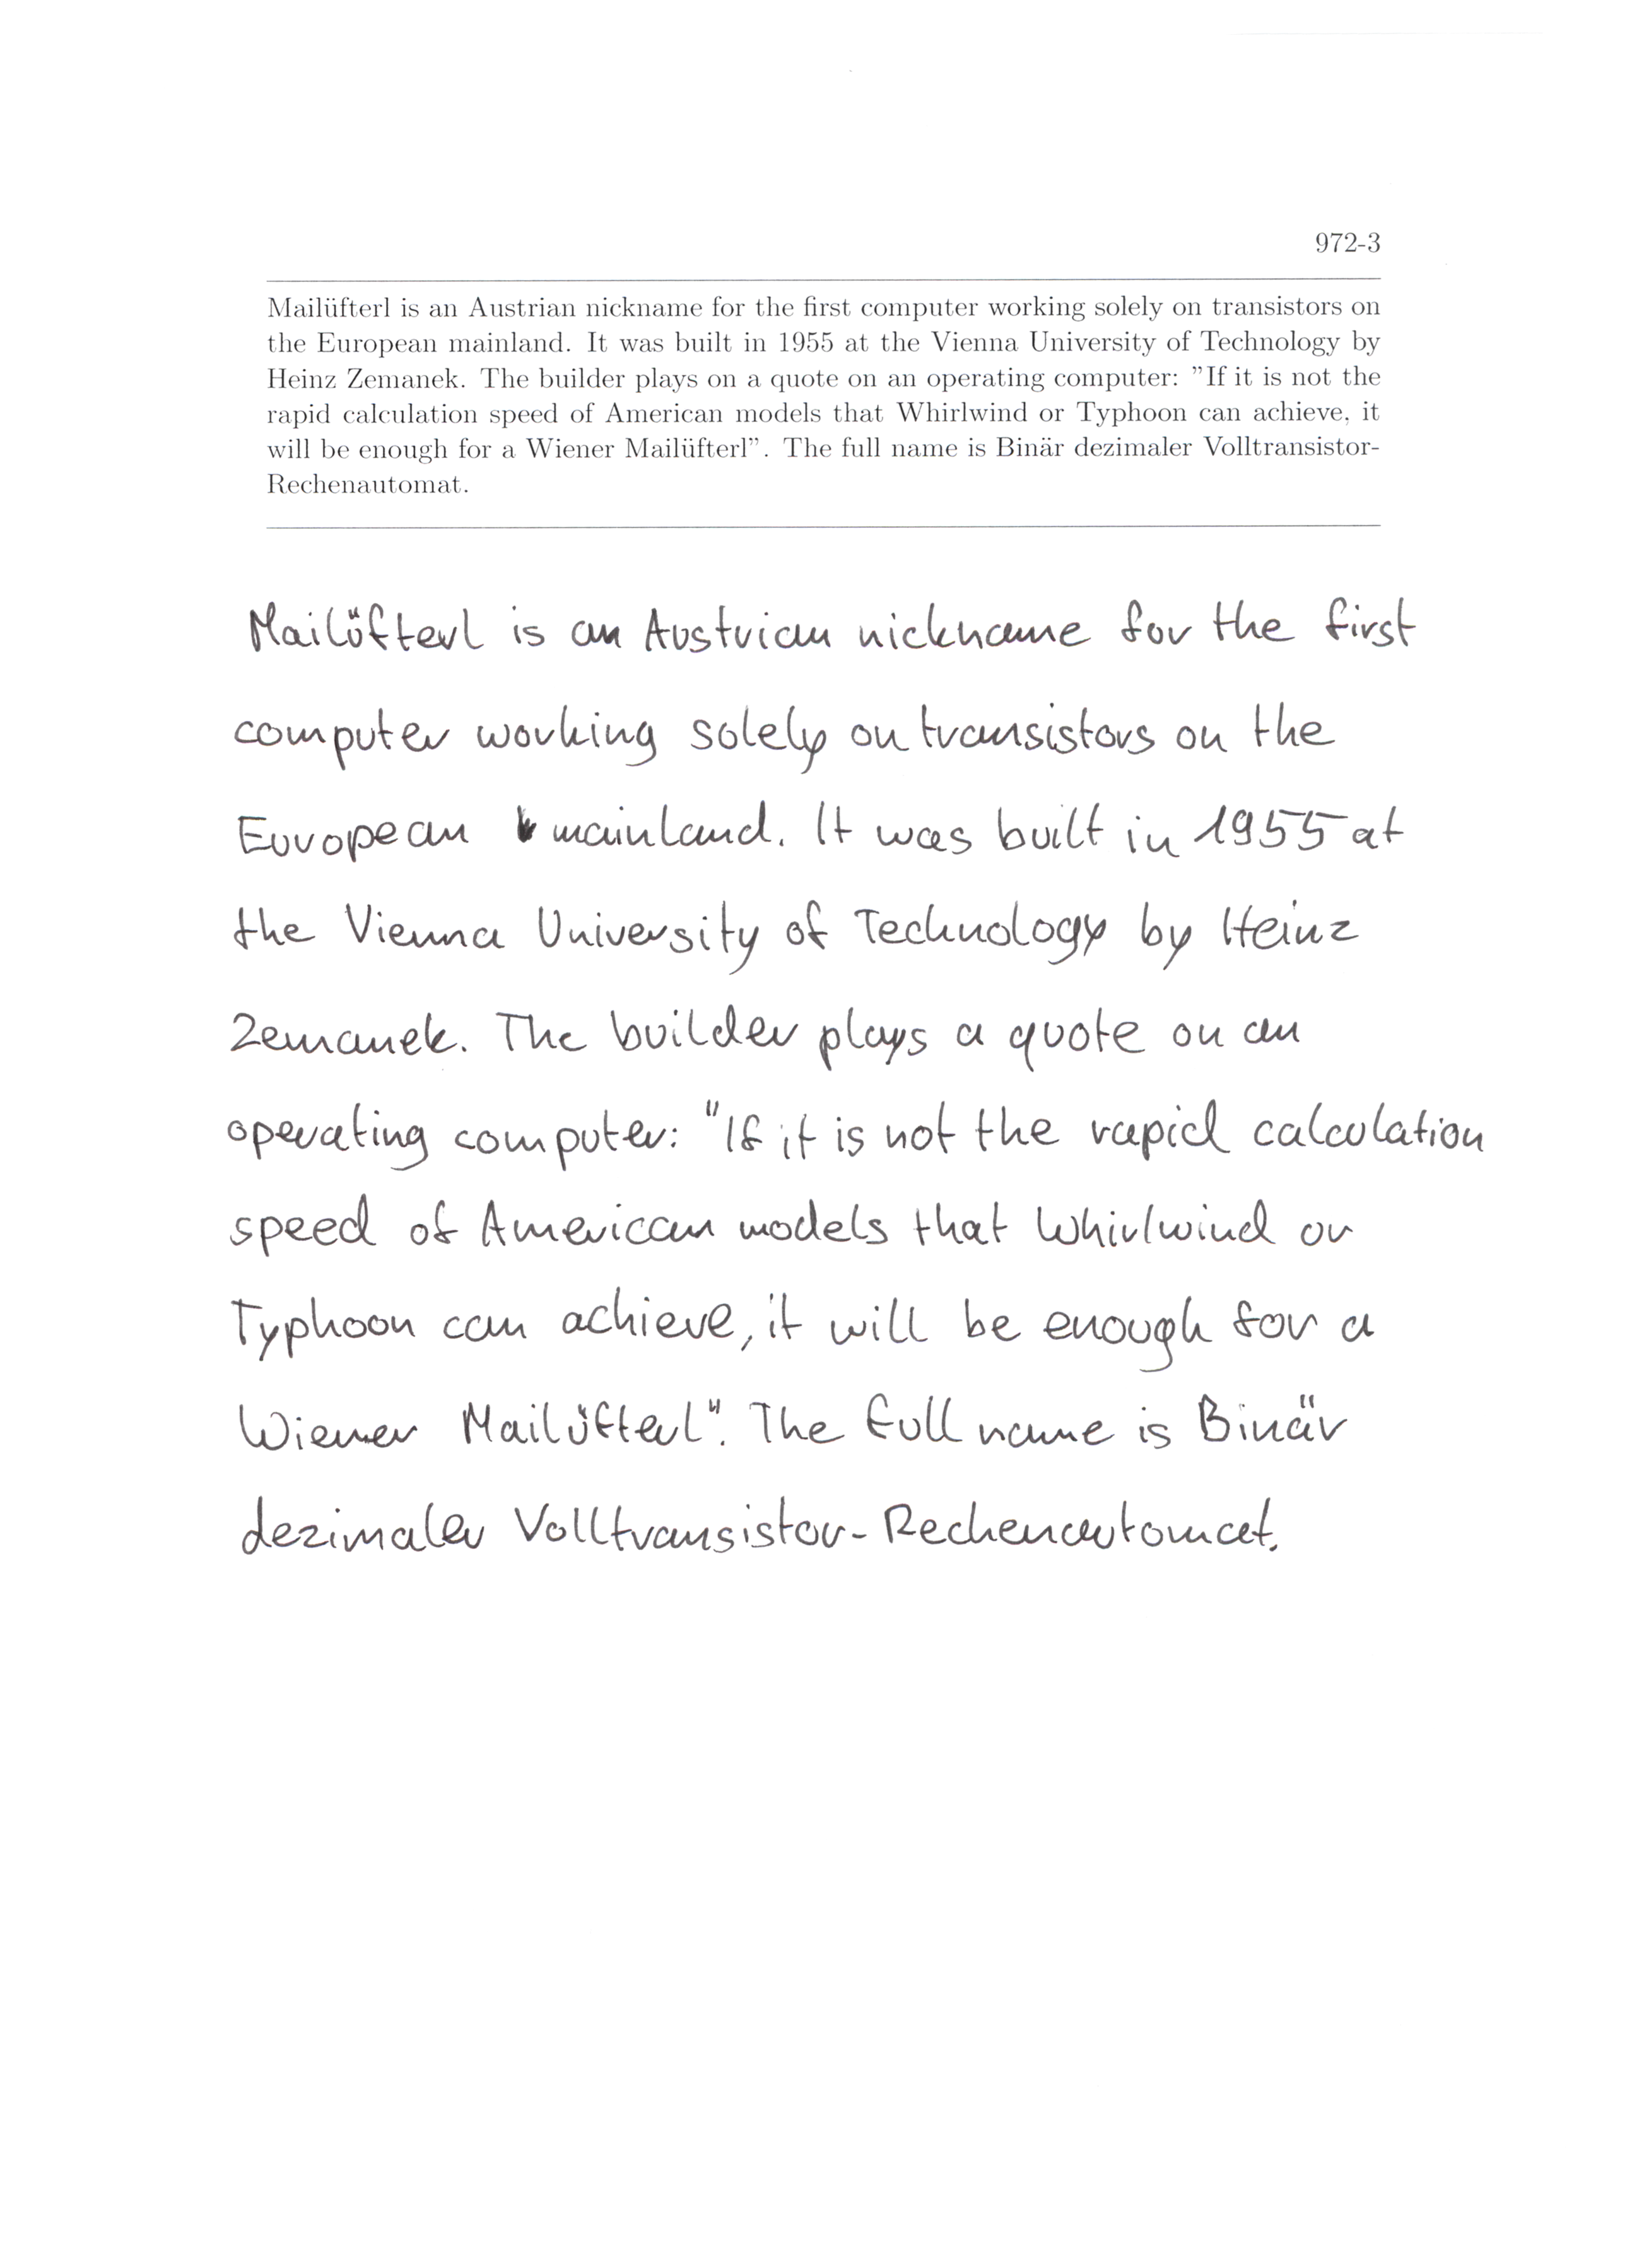 972-3
Mailüfterl is an Austrian nickname for the first computer working solely on transistors on
the European mainland. It was built in 1955 at the Vienna University of Technology by
Heinz Zemanek. The builder plays on a quote on an operating computer: "If it is not the
rapid calculation speed of American models that Whirlwind or Typhoon can achieve, it
will be enough for a Wiener Mailüfterl". The full name is Binär dezimaler Volltransistor-
Rechenautomat.
Mailüfterl is an Austrian nickname for the first
computer working solely on transistors on the
European mainland. It was built in 1955 at
the Vienna University of Technology by Heinz
Zemanek. The builder plays a quote on an
operating computer: "If it is not the rapid calculation
speed of American models that Whirlwind or
Typhoon can achieve, it will be enough for a
Wiener Mailüfterl". The full name is Binär
dezimaler Volltransistor-Rechenautomat.